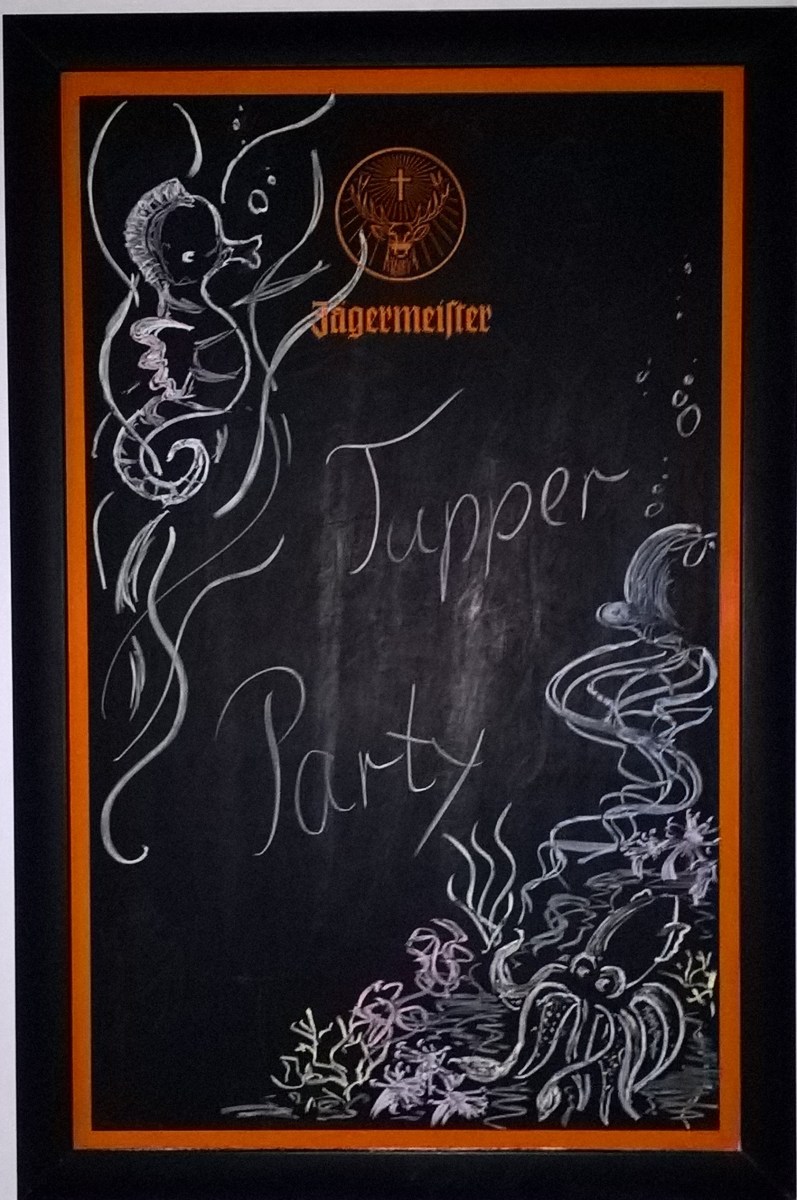 Jägermeiſter
Tupper
Party